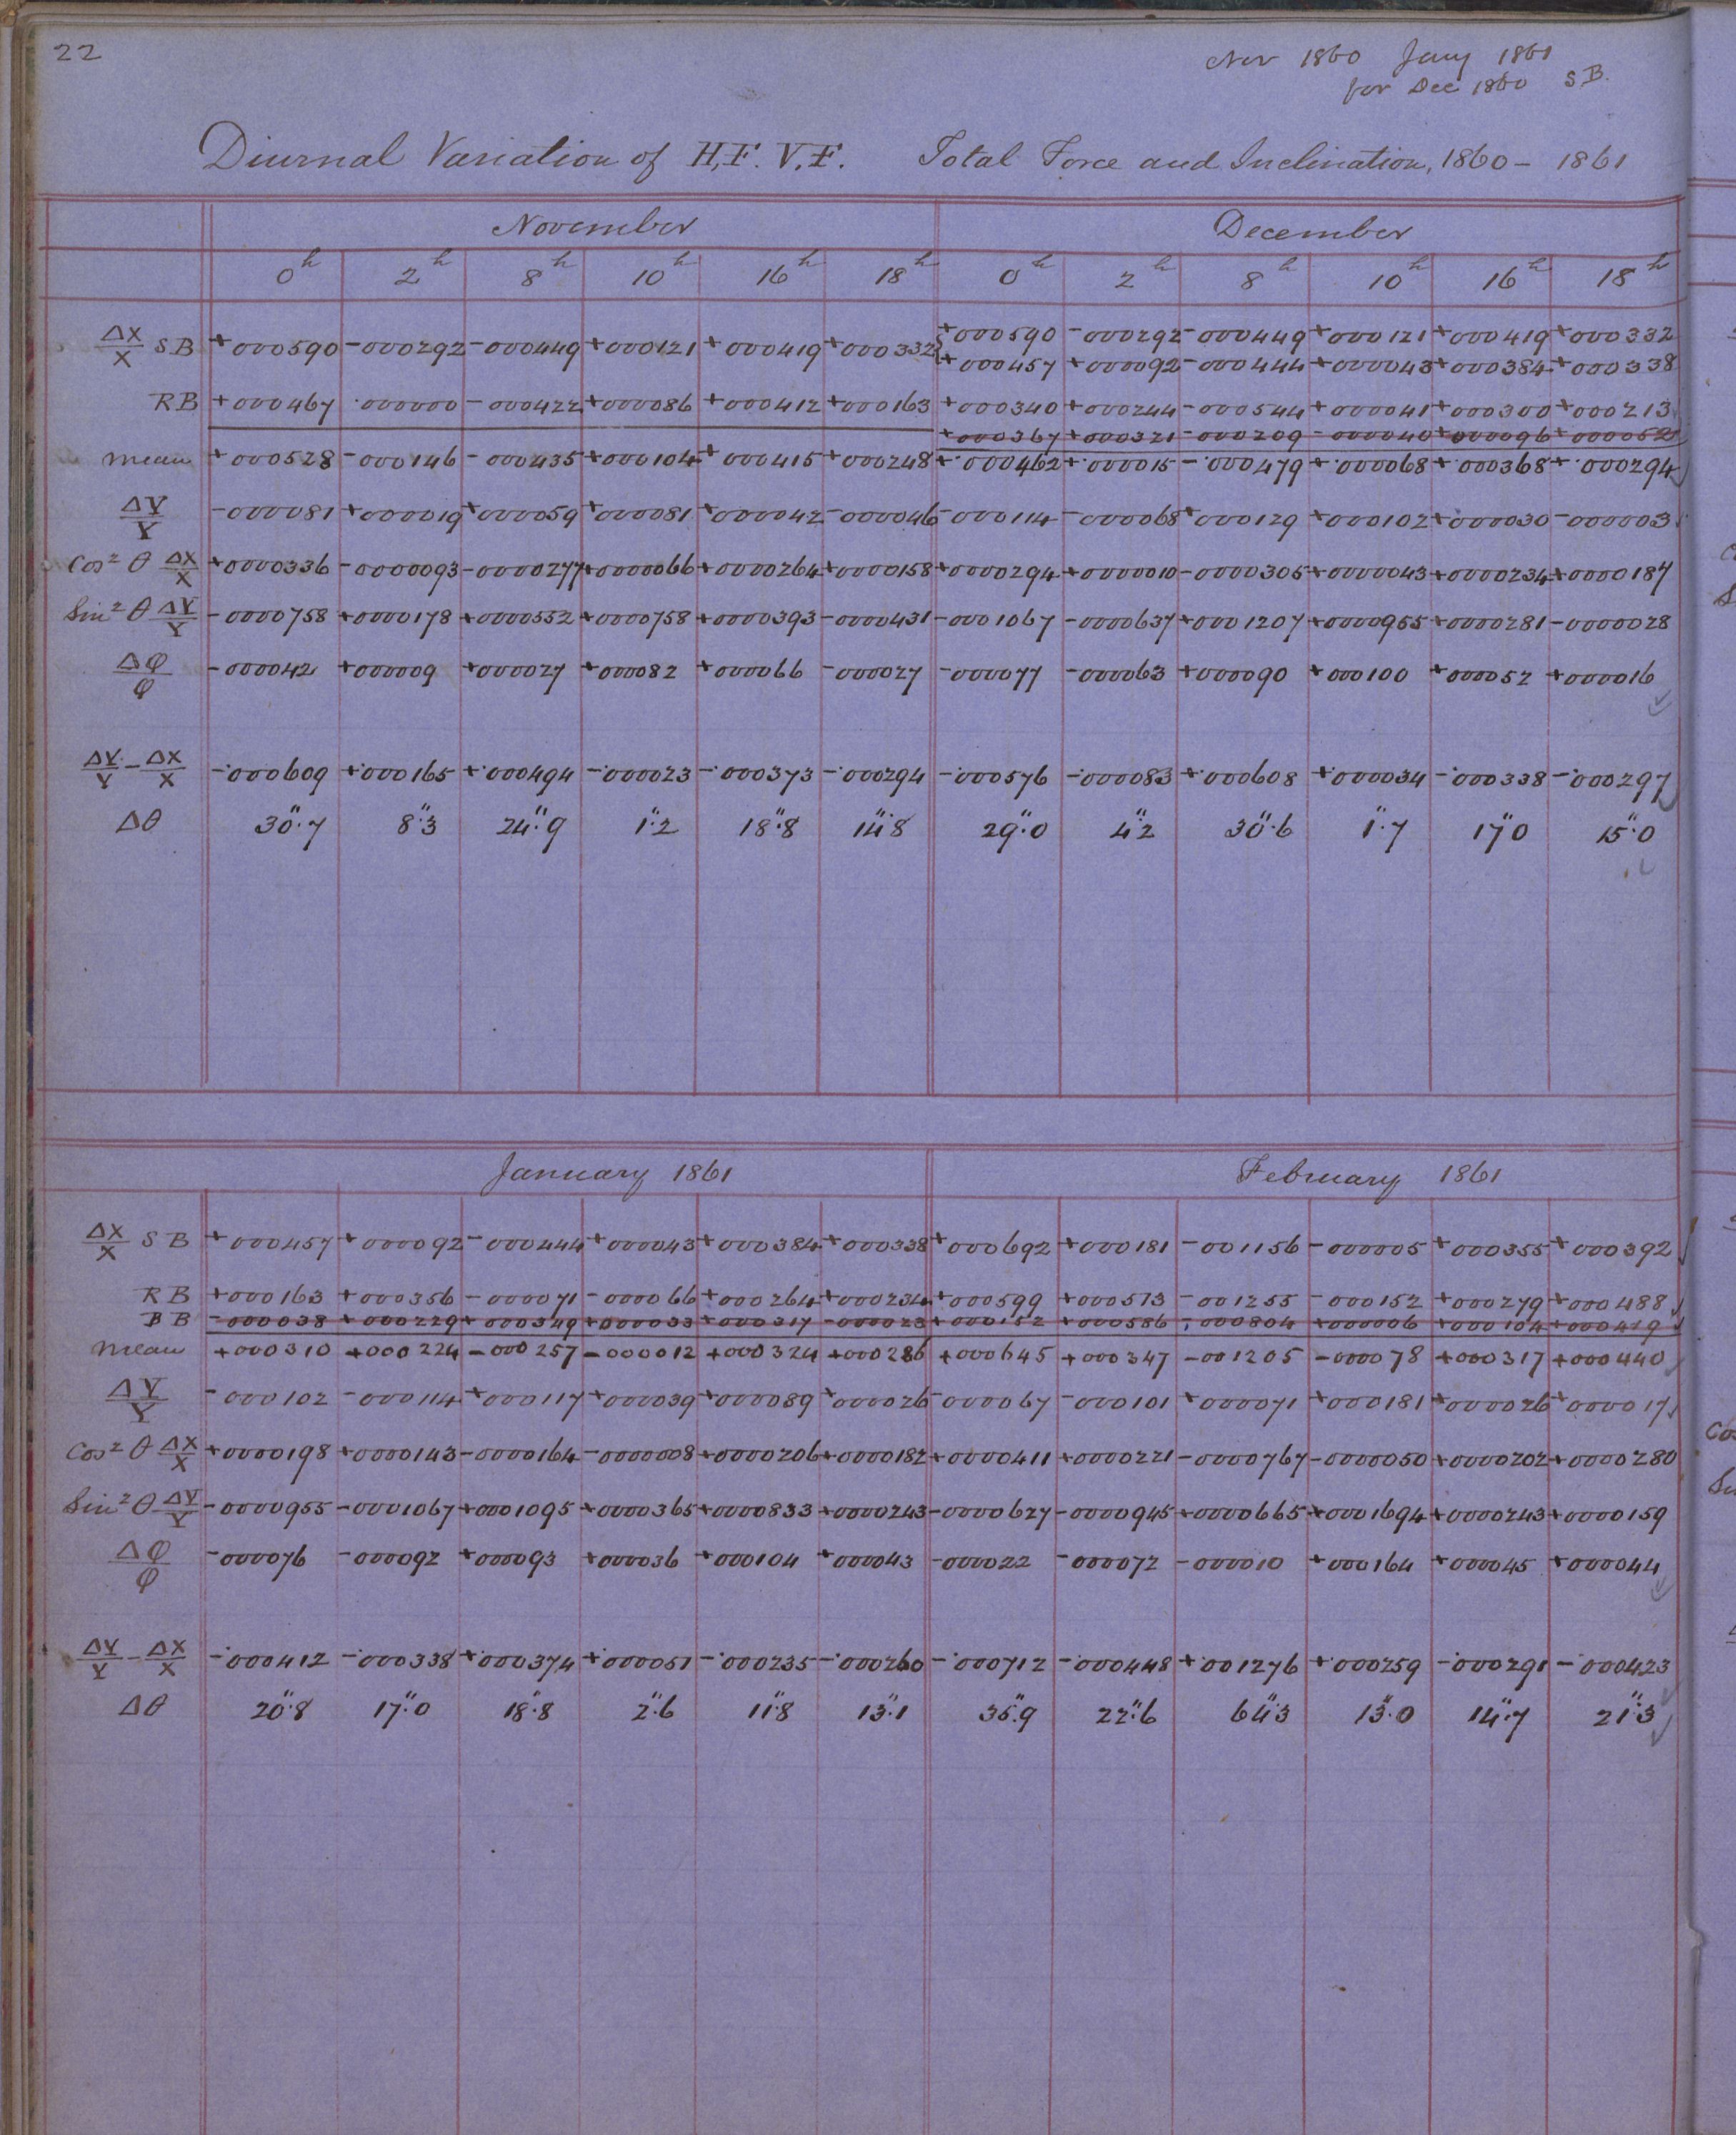 22
Nov 1860 Jany 1861
for Dec 1860 S B.
Diurnal Variation of H.F. V.F. Total Force and Inclination, 1860 - 1861
November December
0h 2h 8h 10h 16h 18h 0h 2h 8h 10h 16h 18h
+000590 -000292 -000449 +000121 +000419 +000332
ΔX/X S B +000590 -000292 -000449 +000121 +000419 +000332 +000457 +000092 -000444 +000043 +000384 +000338
R B +000467 .000000 -000422 +000086 +000412 +000163 +000340 +000244 -000544 +000041 +000300 +000213
+000367 +000321 -000209 -000040 +000096 +000052
Mean +000528 -000146 -000435 +000104 +000415 +000248 +.000462 +.000015 -.000479 +.000068 +.000368 +.000294
ΔY/Y -000081 +000019 +000059 +000081 +000042 -000046 -000114 -000068 +000129 +000102 +000030 -000003
Cos² θ ΔX/X +0000336 -0000093 -0000277 +0000066 +0000264 +0000158 +0000294 +0000010 -0000305 +0000043 +0000234 +0000187
Sin² θ ΔY/Y -0000758 +0000178 +0000552 +0000758 +0000393 -0000431 -0001067 -0000637 +0001207 +0000955 +0000281 -0000028
Δφ/φ -000042 +000009 +000027 +000082 +000066 -000027 -000077 -000063 +000090 +000100 +000052 +000016
ΔY/Y - ΔX/X -.000609 +.000165 +.000494 -.000023 -.000373 -.000294 -.000576 -.000083 +.000608 +.000034 -.000338 -.000297
Δθ 30".7 8".3 24".9 1".2 18".8 14".8 29".0 4".2 30".6 1".7 17"0 15".0
January 1861 February 1861
ΔX/X S B +000457 +000092 -000444 +000043 +000384 +000338 +000692 +000181 -001156 -000005 +000355 +000392
R B +000163 +000356 -000071 -000066 +000264 +000234 +000599 +000513 -001255 -000152 +000279 +000488
B B -000038 +000229 +000349 +000033 +000317 -000023 +000152 +000586 -000804 +000006 +000104 +000419
Mean +000310 +000224 -000257 -000012 +000324 +000286 +000645 +000347 -001205 -000078 +000317 +000440
ΔY/Y -000102 -000114 +000117 +000039 +000089 +000026 -000067 -000101 +000071 +000181 +000026 +000017
Cos² θ ΔX/X +0000198 +0000143 -0000164 -0000008 +0000206 +0000182 +0000411 +0000221 -0000767 -0000050 +0000202 +0000280
Sin² θ ΔY/Y -0000955 -0001067 +0001095 +0000365 +0000833 +0000243 -0000627 -0000945 +0000665 +0001694 +0000243 +0000159
Δφ/φ -000076 -000092 +000093 +000036 +000104 +000043 -000022 -000072 -000010 +000164 +000045 +000044
ΔY/Y - ΔX/X -.000412 -.000338 +.000374 +.000051 -.000235 -.000260 -.000712 -.000448 +.001276 +.000259 -.000291 -.000423
Δθ 20".8 17".0 18".8 2".6 11"8 13".1 35".9 22".6 64".3 13".0 14".7 21".3